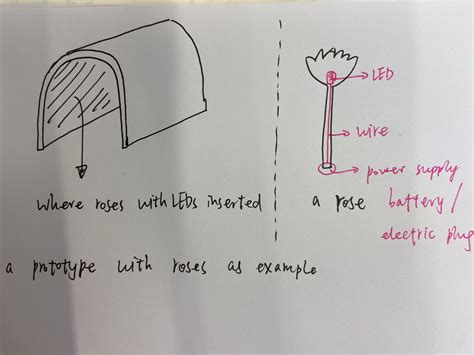 LED
wire
power supply
battery /
electric plug
where roses with LEDs inserted
a rose
a prototype with roses as example